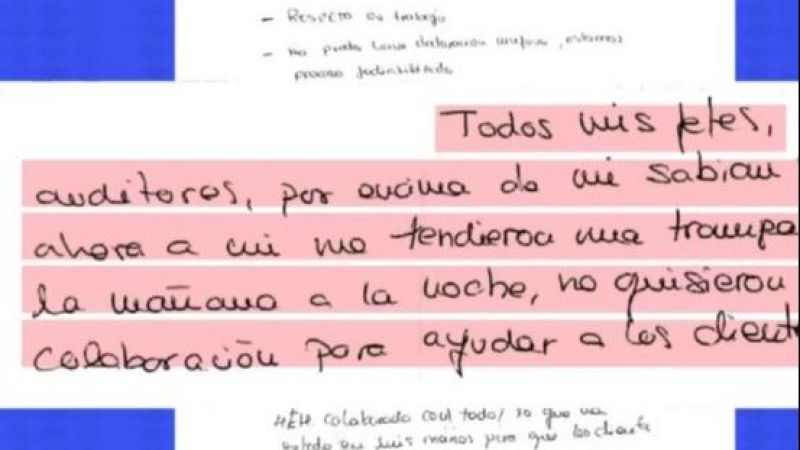 - Respecto de trabajo
- No puedo hacer declaración ninguna, estamos
proceso judicializado
Todos mis jefes,
auditores, por encima de mi sabian
ahora a mi me tendieron una trampa
la mañana a la noche, no quisieron
colaboración para ayudar a los cliente
colaborado con todo/ lo que
mis manos para que los cliente